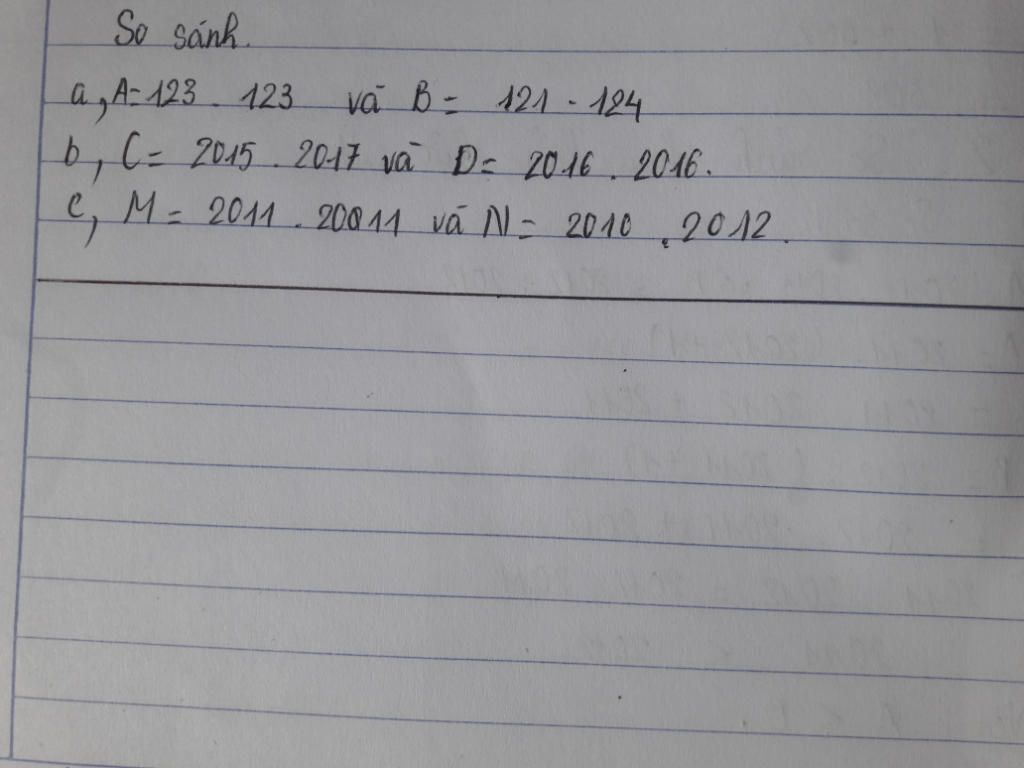 So sánh.
a, A = 123 . 123 và B = 121 . 124
b, C = 2015 . 2017 và D = 2016 . 2016.
c, M = 2011 . 20011 và N = 2010 . 2012.